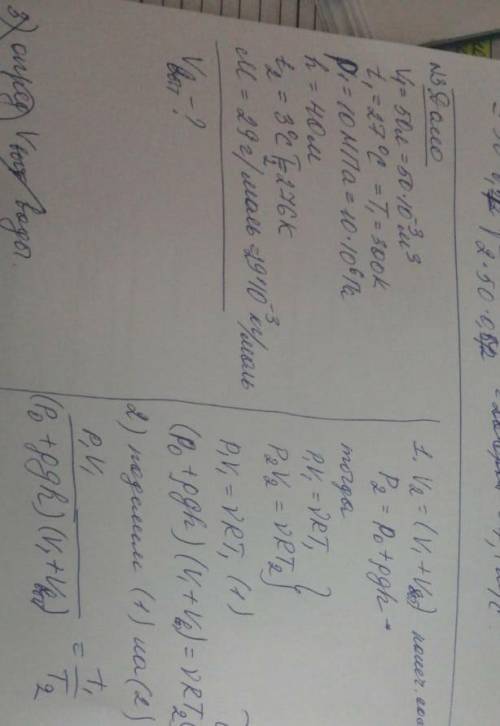 №3 Дано
V₁ = 50л = 50·10⁻³ м³
t₁ = 27°C = T₁ = 300K
p₁ = 10 МПа = 10·10⁶ Па
h = 40м
t₂ = 3°C T₂ = 276K
M = 29 г/моль = 29·10⁻³ кг/моль
Vвыт - ?
1. V₂ = (V₁ + Vвыт)
P₂ = P₀ + ρgh
тогда
p₁V₁ = νRT₁ }
P₂V₂ = νRT₂ }
P₁V₁ = νRT₁ (1)
(P₀ + ρgh)(V₁ + V₂) = νRT₂
2) поделим (1) на (2)
P₁V₁ / (P₀ + ρgh)(V₁ + Vвыт) = T₁ / T₂
3) опред Vвыт воды.